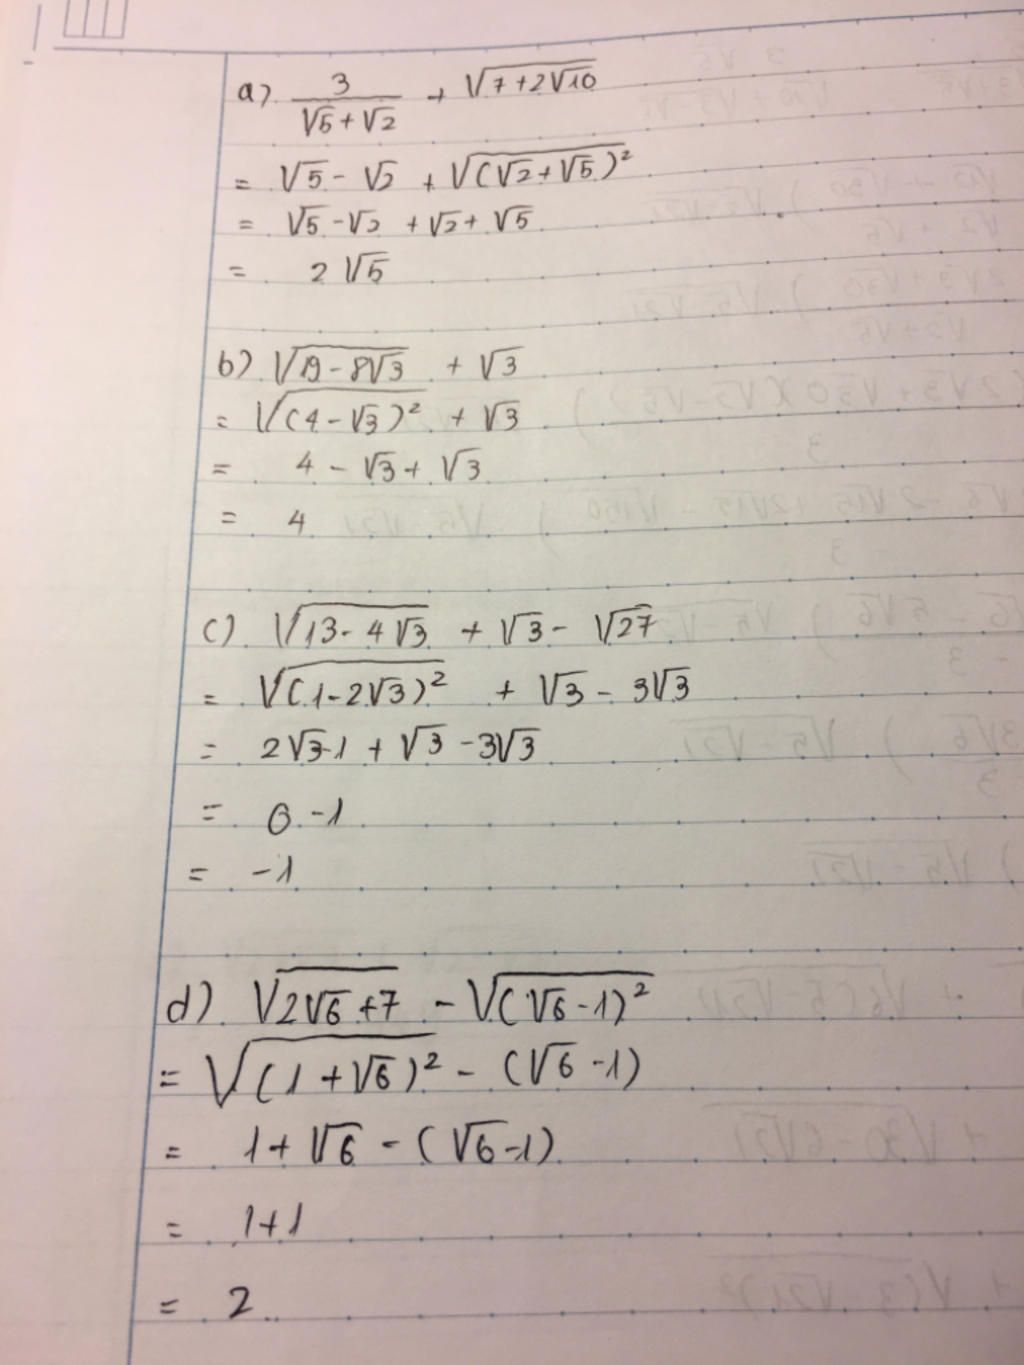 a) 3/(√5+√2) + √(7+2√10)
= √5 - √2 + √((√2+√5)²)
= √5 - √2 + √2 + √5
= 2√5
b) √(19-8√3) + √3
= √((4-√3)²) + √3
= 4 - √3 + √3
= 4
c) √(13-4√3) + √3 - √27
= √((1-2√3)²) + √3 - 3√3
= 2√3-1 + √3 - 3√3
= 0 - 1
= -1
d) √(2√6+7) - √((√6-1)²)
= √((1+√6)²) - (√6-1)
= 1+√6 - (√6-1)
= 1+1
= 2